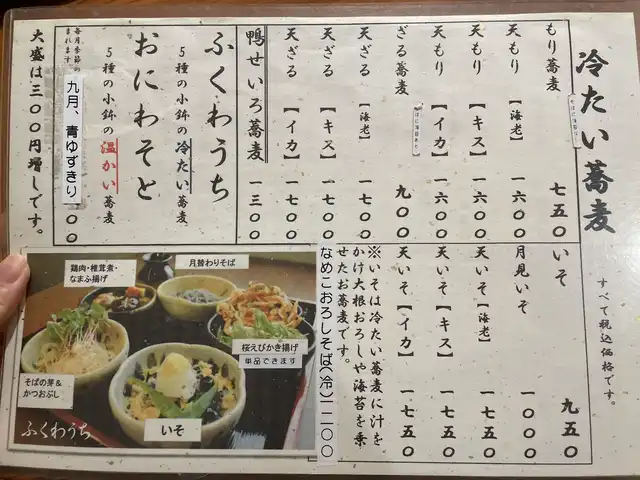 冷たい蕎麦
すべて税込価格です。
もり蕎麦 七五〇
天もり【海老】 一六〇〇
天もり【キス】 一六〇〇
天もり【イカ】 一六〇〇
ざる蕎麦 九〇〇
天ざる【海老】 一七〇〇
天ざる【キス】 一七〇〇
天ざる【イカ】 一七〇〇
鴨せいろ蕎麦 一三〇〇
いそ 九五〇
月見いそ 一〇〇〇
天いそ【海老】 一七五〇
天いそ【キス】 一七五〇
天いそ【イカ】 一七五〇
※いそは冷たい蕎麦に汁を
かけ大根おろしや海苔を乗
せたお蕎麦です。
なめこおろしそば(冷)一二〇〇
ふくわうち
5種の小鉢の冷たい蕎麦
おにわそと
5種の小鉢の温かい蕎麦
九月、青ゆずきり
大盛は三〇〇円増しです。
鶏肉・椎茸煮・
なまふ揚げ
月替わりそば
桜えびかき揚げ
単品できます
そばの芽&
かつおぶし
いそ
ふくわうち